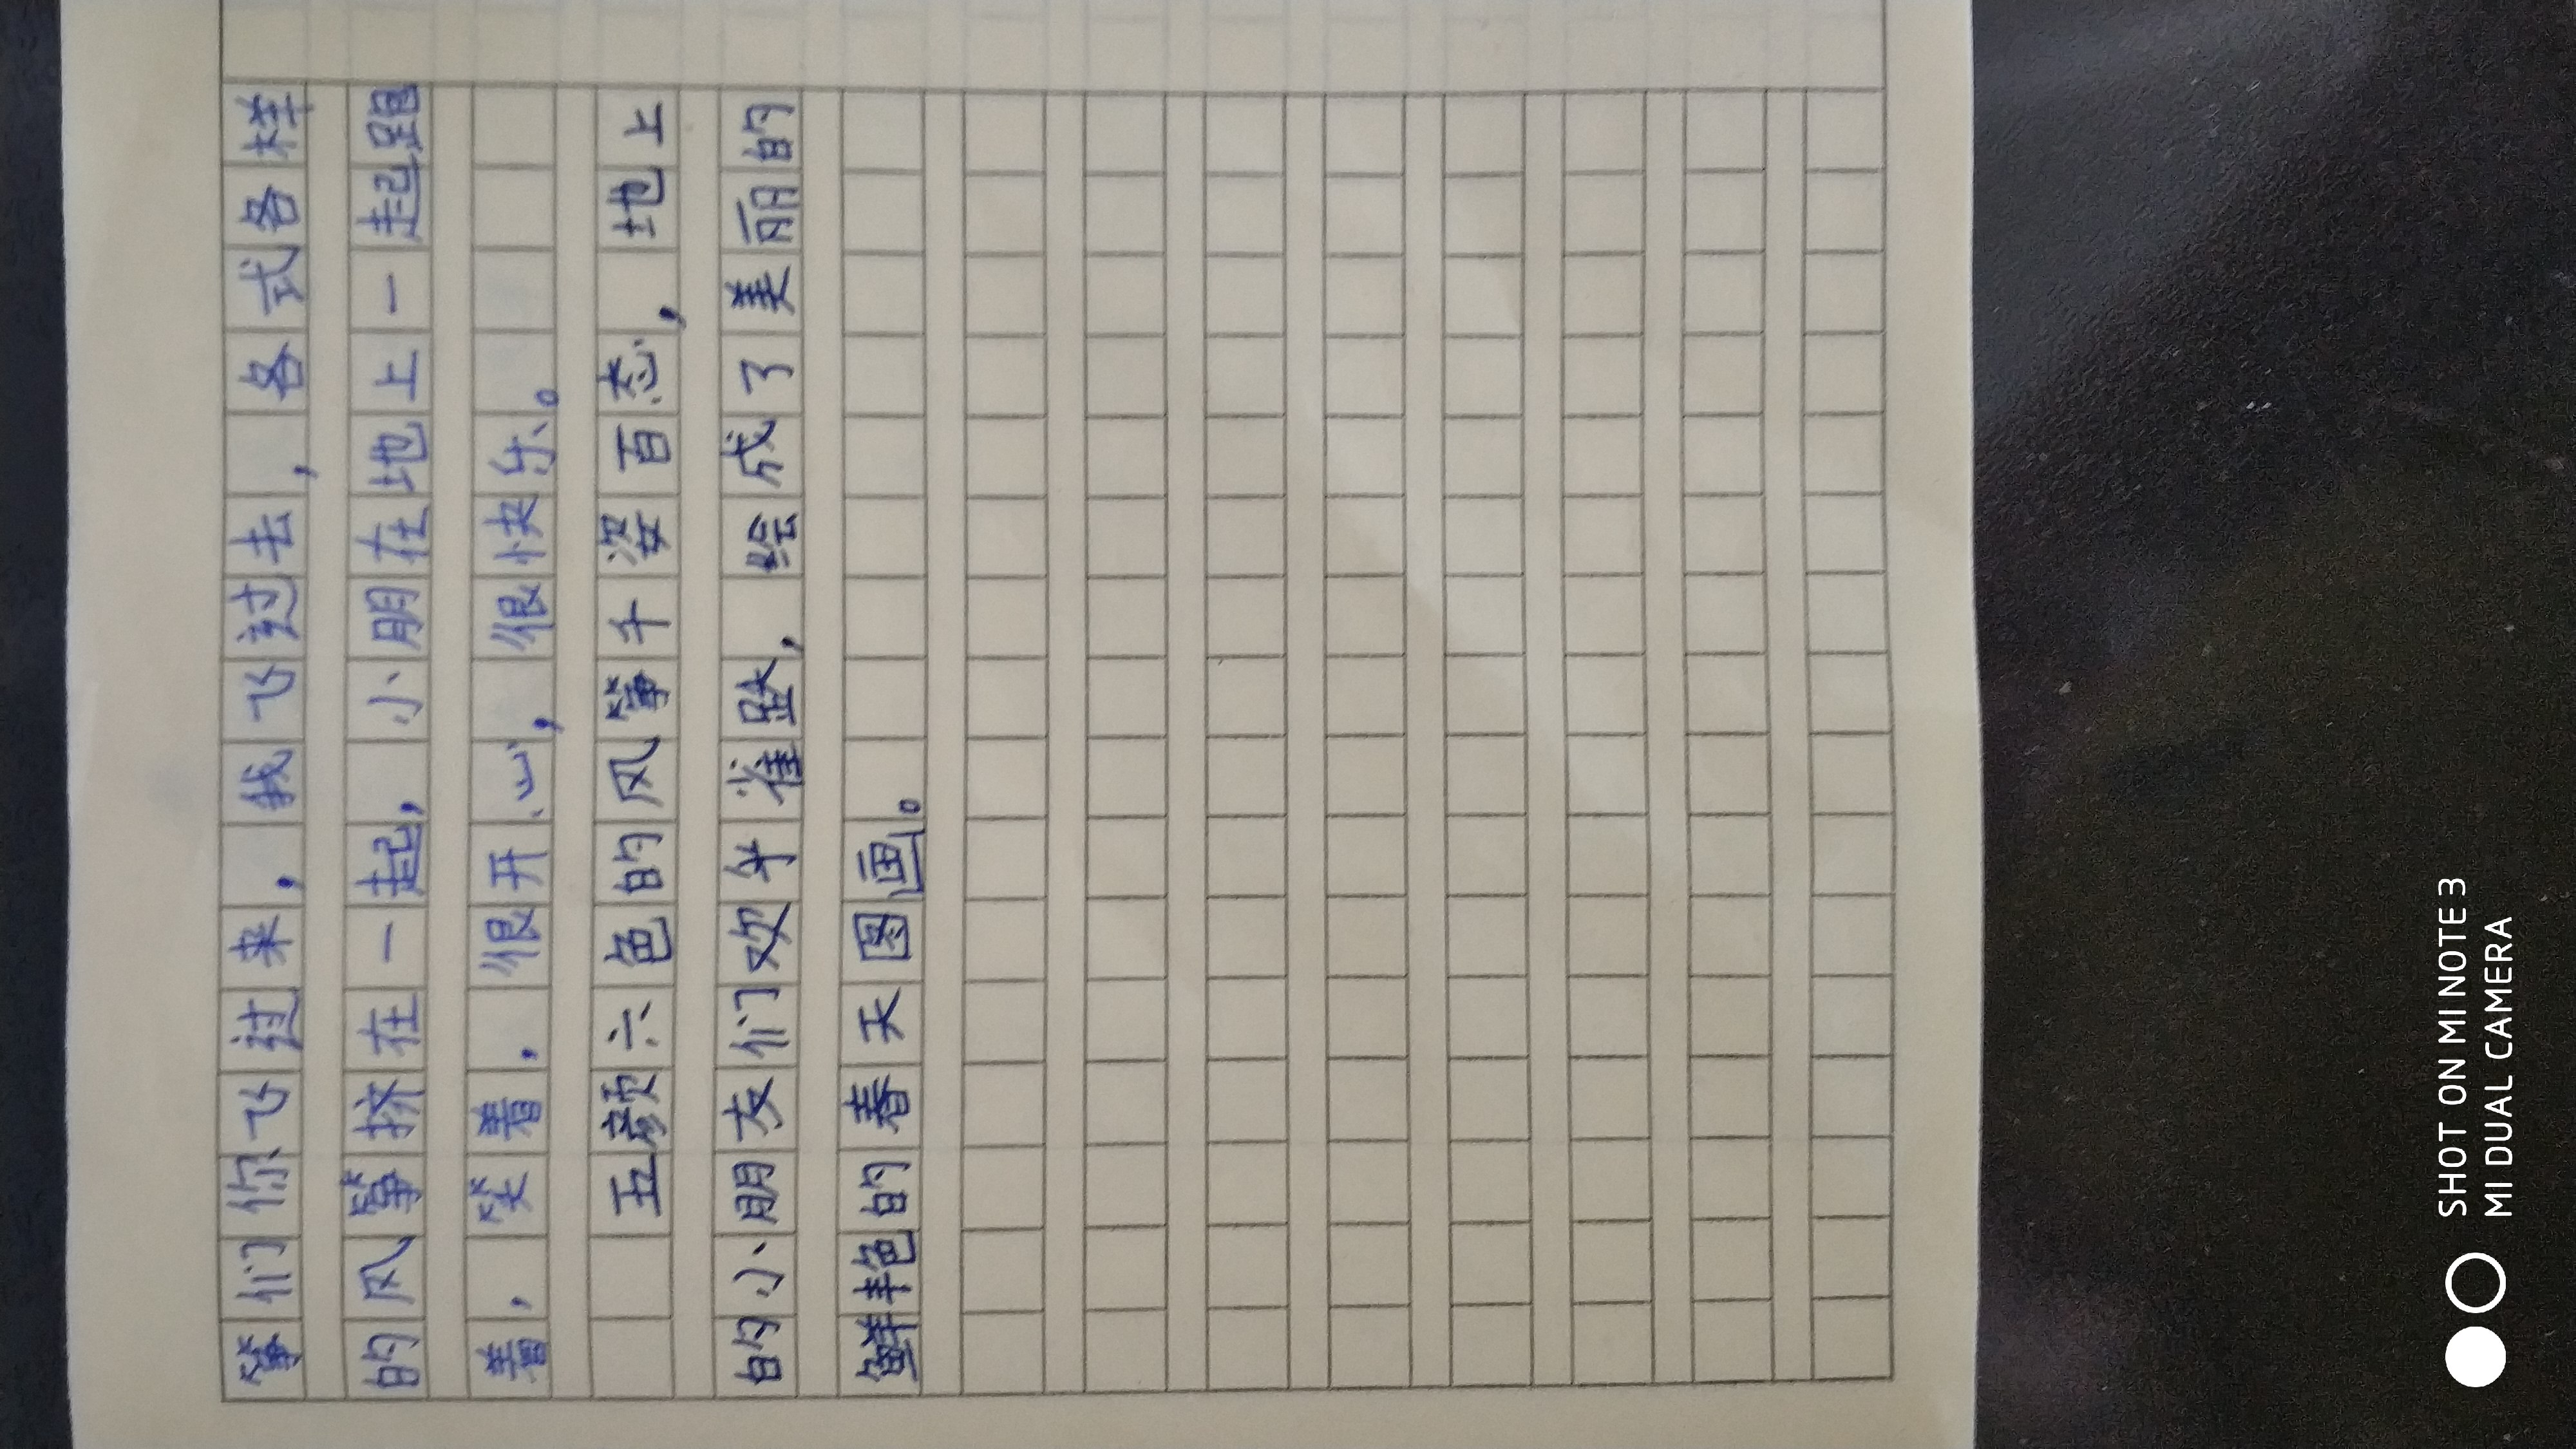 筝们你飞过来，我飞过去，各式各样
的风筝挤在一起，小朋在地上一起跟
着，笑着，很开心，很快乐。
五颜六色的风筝千姿百态，地上
的小朋友们欢乍雀跃，绘成了美丽的
鲜艳的春天图画。
SHOT ON MI NOTE 3
MI DUAL CAMERA